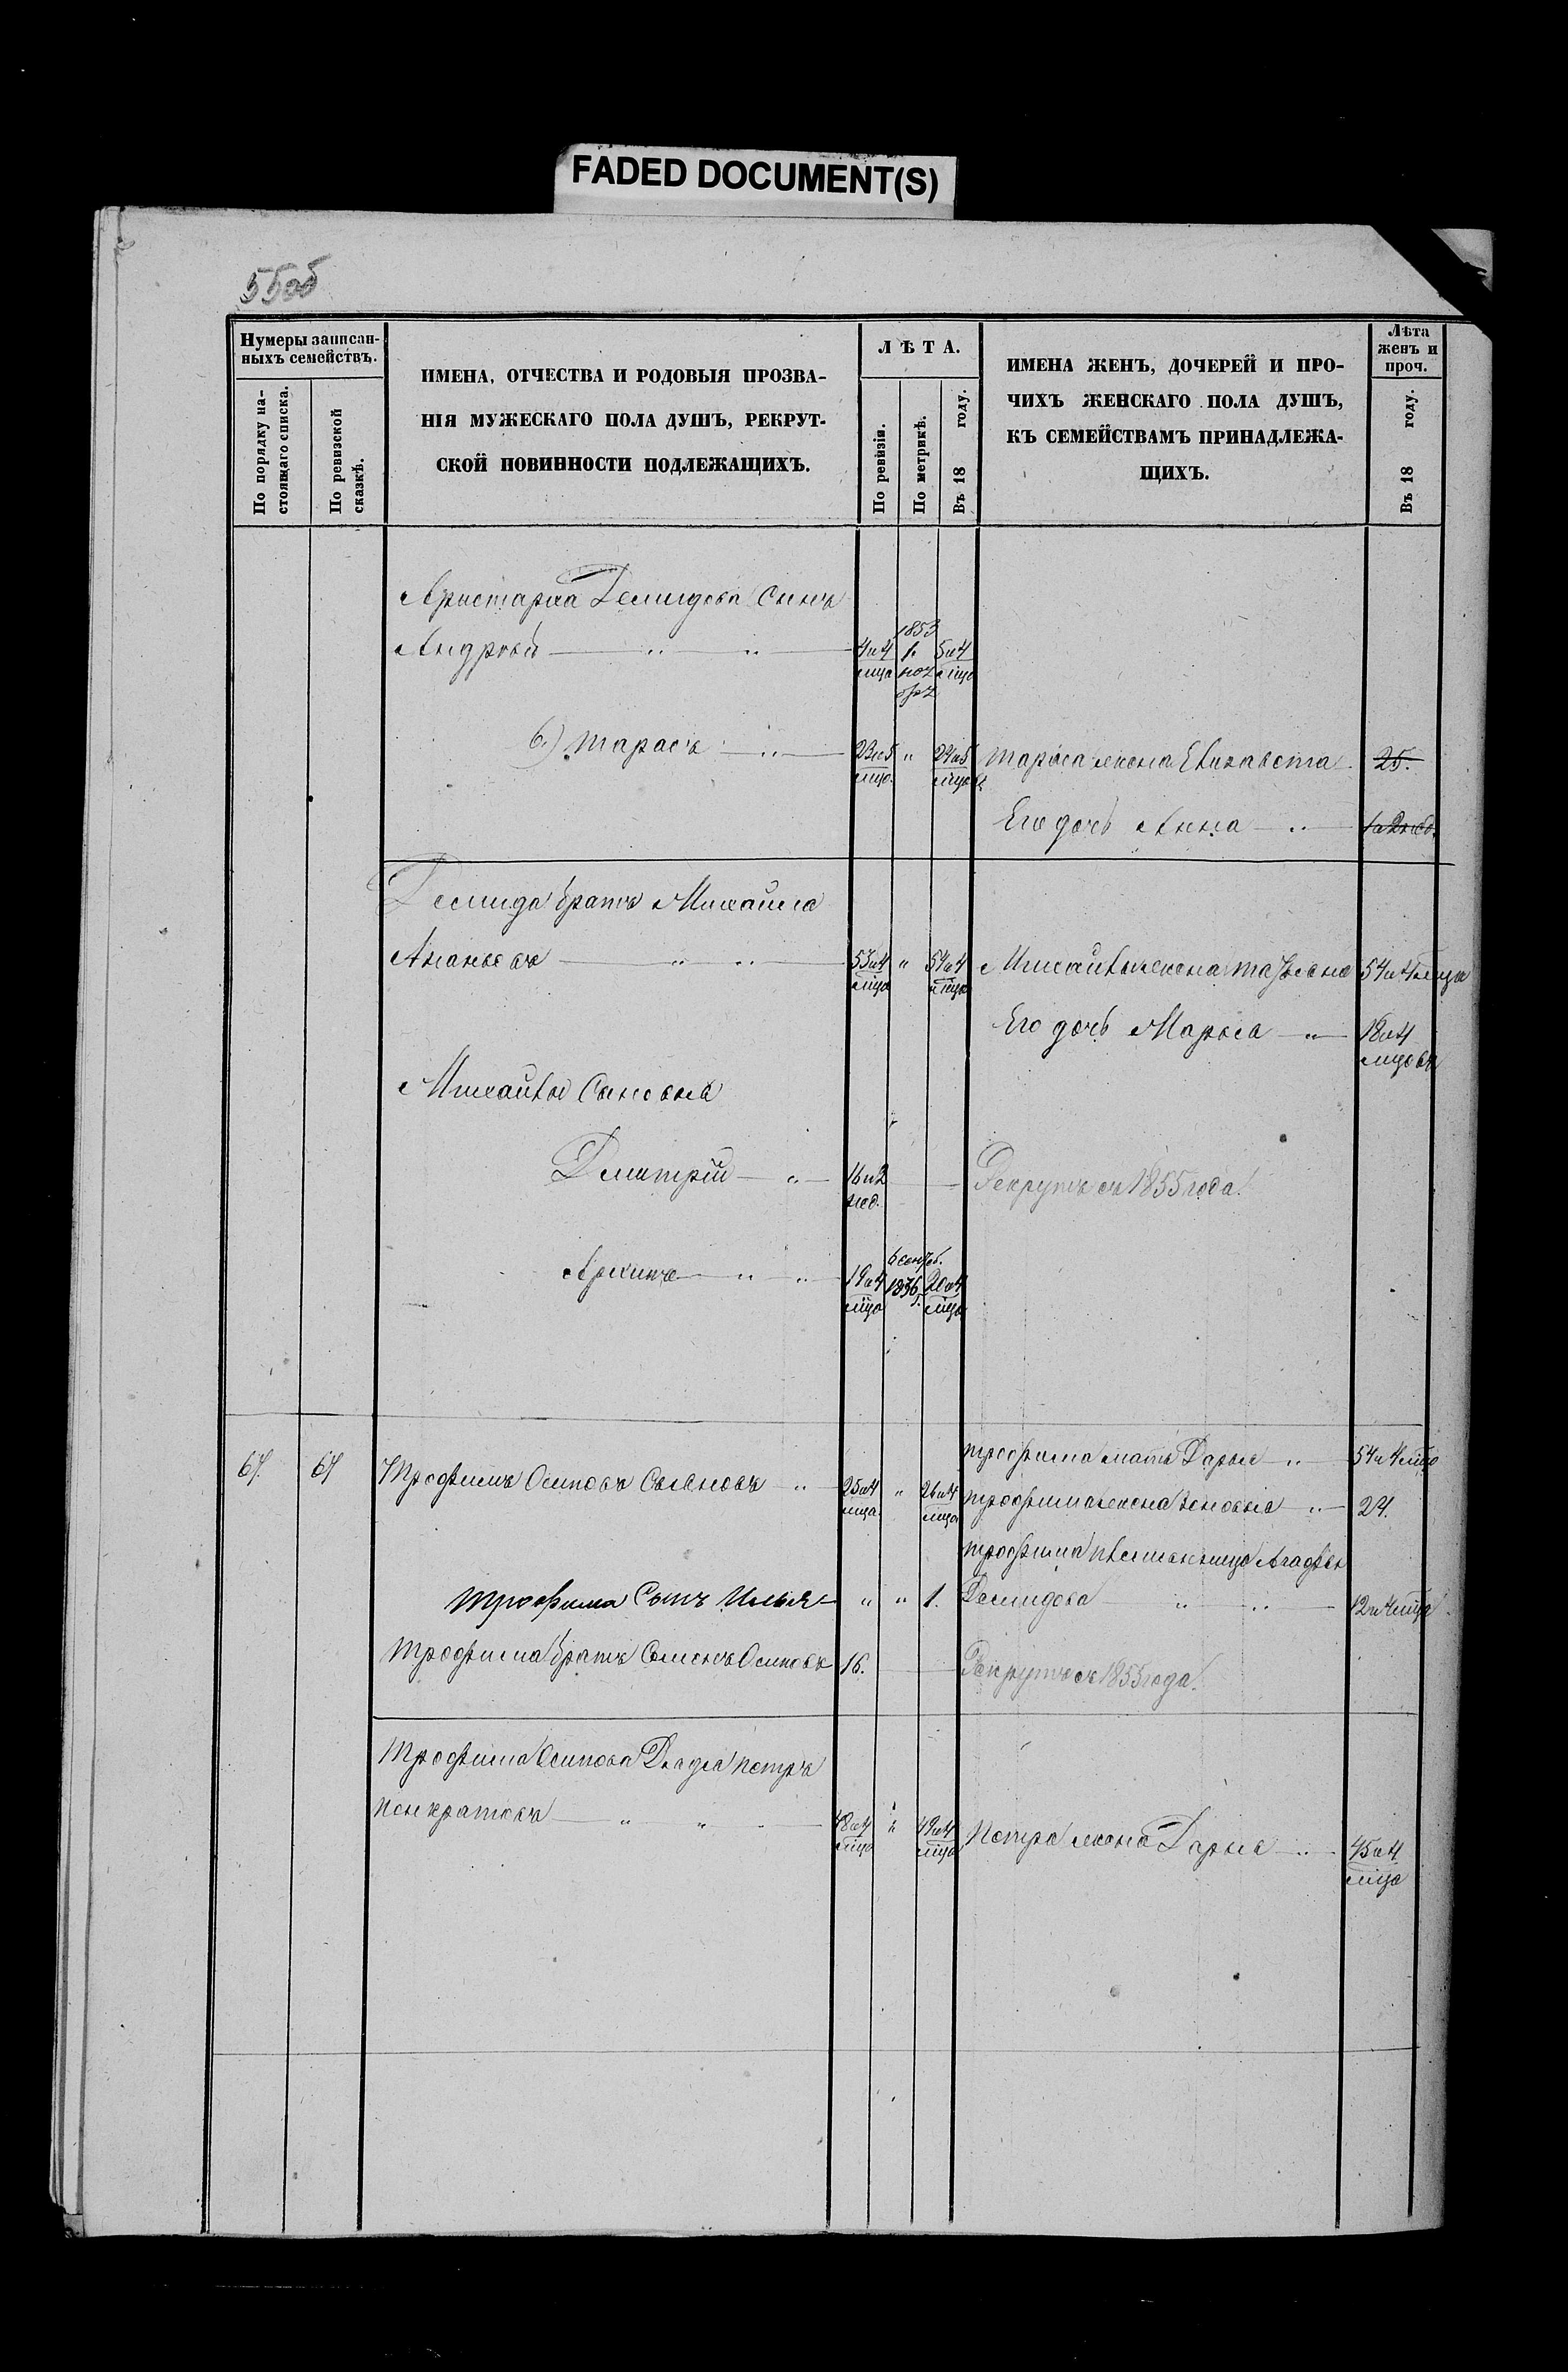 FADED DOCUMENT(S)
55об
Нумеры записан-
ныхъ семействъ.
По порядку на-
стоящаго списка.
По ревизской
сказкѣ.
ИМЕНА, ОТЧЕСТВА И РОДОВЫЯ ПРОЗВА-
НІЯ МУЖЕСКАГО ПОЛА ДУШЪ, РЕКРУТ-
СКОЙ ПОВИННОСТИ ПОДЛЕЖАЩИХЪ.
ЛѢТА.
По ревизіи.
По метрикѣ.
Въ 18 году.
ИМЕНА ЖЕНЪ, ДОЧЕРЕЙ И ПРО-
ЧИХЪ ЖЕНСКАГО ПОЛА ДУШЪ,
КЪ СЕМЕЙСТВАМЪ ПРИНАДЛЕЖА-
ЩИХЪ.
Лѣта
женъ и
проч.
Въ 18 году.
Аристарха Демидова Сынъ
Андрей 4 и 4 мца 1853 5 и 4 мца
б.) Тарасъ 23 и 5 мцо. 24 и 5 мцовъ Тараса жена Елизавета 25.
Его дочь Анна
Демида братъ Михаила
Ананьевъ 53 и 4 мца 54 и 4 мца Михайлы жена Татьяна 54 и 4 мца
Его дочь Марья 18 и 4 мцовъ
Михайлы Сыновья
Дмитрій 16 и 2 нед. Рекрутъ съ 1855 года.
Архипъ 19 и 4 мца 6 сентяб. 1836 г. 20 и 4 мца
67. 67 Трофимъ Осиповъ 25 и 4 мца. 26 и 4 мца
Трофима мать Дарья 54 и 4 мцо
Трофима жена Зеновья 24.
Трофима племянница Агафья
Демидова 12 и 4 мца
Трофима Сынъ Илья 1.
Трофима братъ Семенъ Осиповъ 16. Рекрутъ съ 1855 года.
Трофима Осипова Дядя Петръ
Понкратовъ 48 и 4 мца 49 и 4 мца Петра жена Дарья 45 и 4 мца